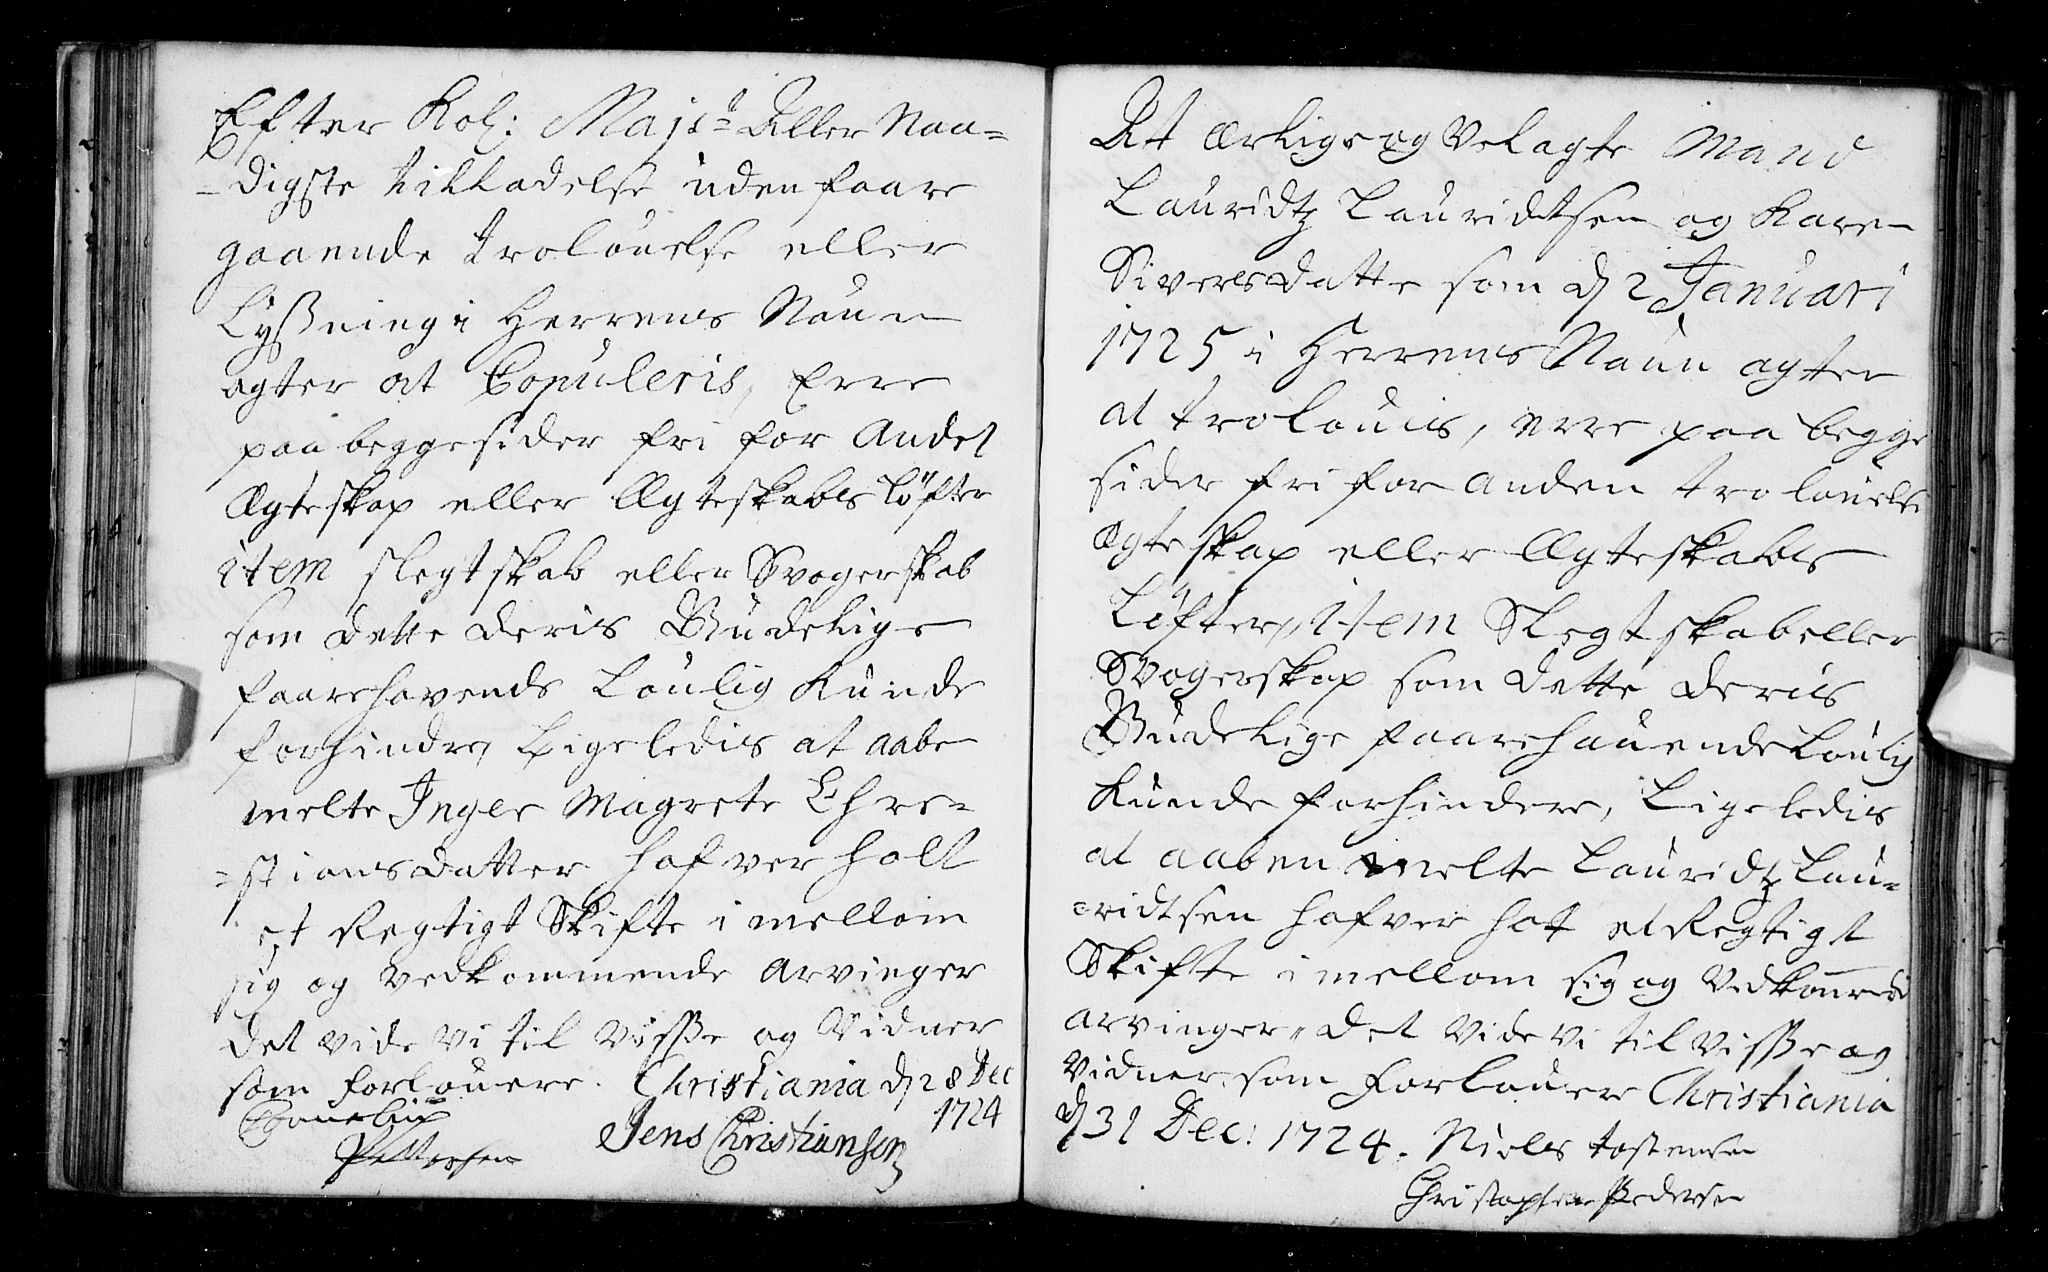 Efter Kol: Majst: Aller Naa=
=digste tilladelse uden faare
gaaende trolouelse eller
Lysßning i Herrens Naun
agter at Copuleris, Erre
paa begge sider fri for Andet
Ægteskap eller Ægteskabs Løfter
item slegtskab eller Svogerskab
som dette deris Gudelige
faarehavends Loulig Kunde
forhindre, Ligeledis at aaben
melte Inger Magrete Chre=
=stiansdatter hafver holt
et Regtigt Skifte i mellom
sig og vedkommende arvinger
det vide vi til visße og Vidner
som forlouere. Christiania d 28 Dec
1724
Cornelius
Pettersen
Jens Christiansen
At Ærlige og Velagte Mand
Lauridtz Lauridtsen og Karen
Siversdatter som d 2 Januari
1725 i Herrens Naun agter
at trolouis, erre paa begge
sider fri for anden trolouelse
Ægteskap eller Ægteskabs
Løfter, item Slegtskab eller
Svogerskap som dette deris
Gudelige faarehauende Loulig
Kunde forhindere, Ligeledis
at aabenmelte Lauridtz Lau=
=ridtsen hafver hot et Regtigt
Skifte i mellom sig og Vedkommende
arvinger, det vide vi til visße og
vidner som Forlouere Christiania
d 31 Dec: 1724. Niels Tostensen
Christophen Pedersen